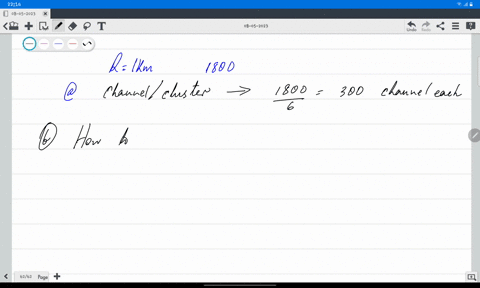 08-03-2023
08-03-2023
Undo Redo
R = 1km 1800
ⓐ channel/cluster → 1800/6 = 300 channel each
ⓑ How
Page